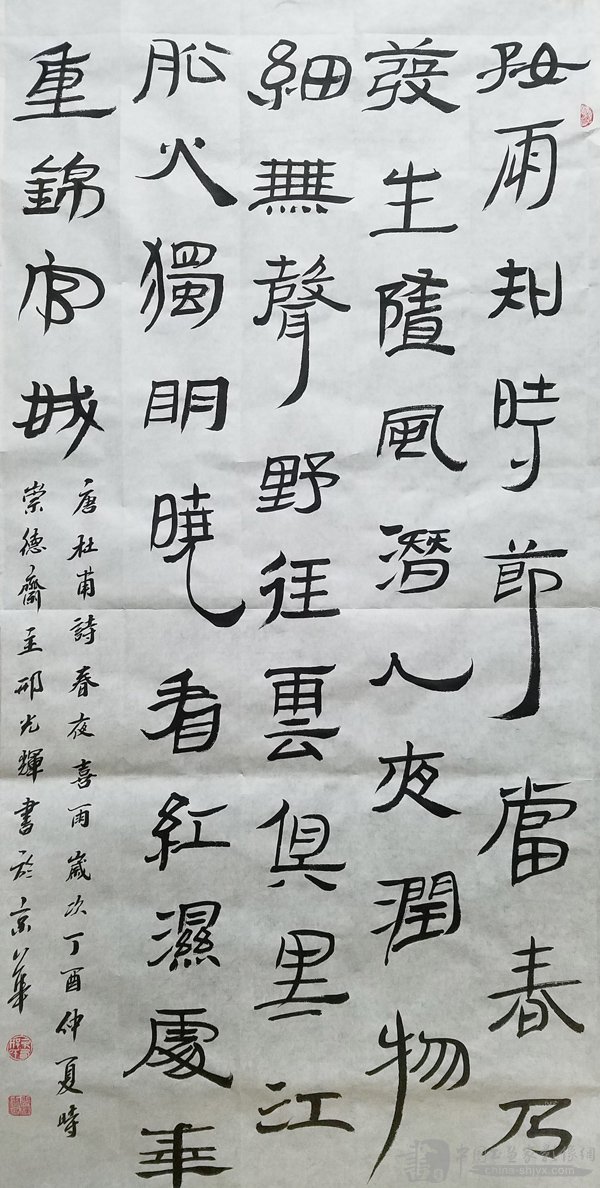 好雨知時節當春乃
發生隨風潛入夜潤物
細無聲野徑雲俱黑江
船火獨明曉看紅濕處華
重錦官城
唐杜甫詩春夜喜雨歲次丁酉仲夏時
崇德齋主邢光輝書於京華